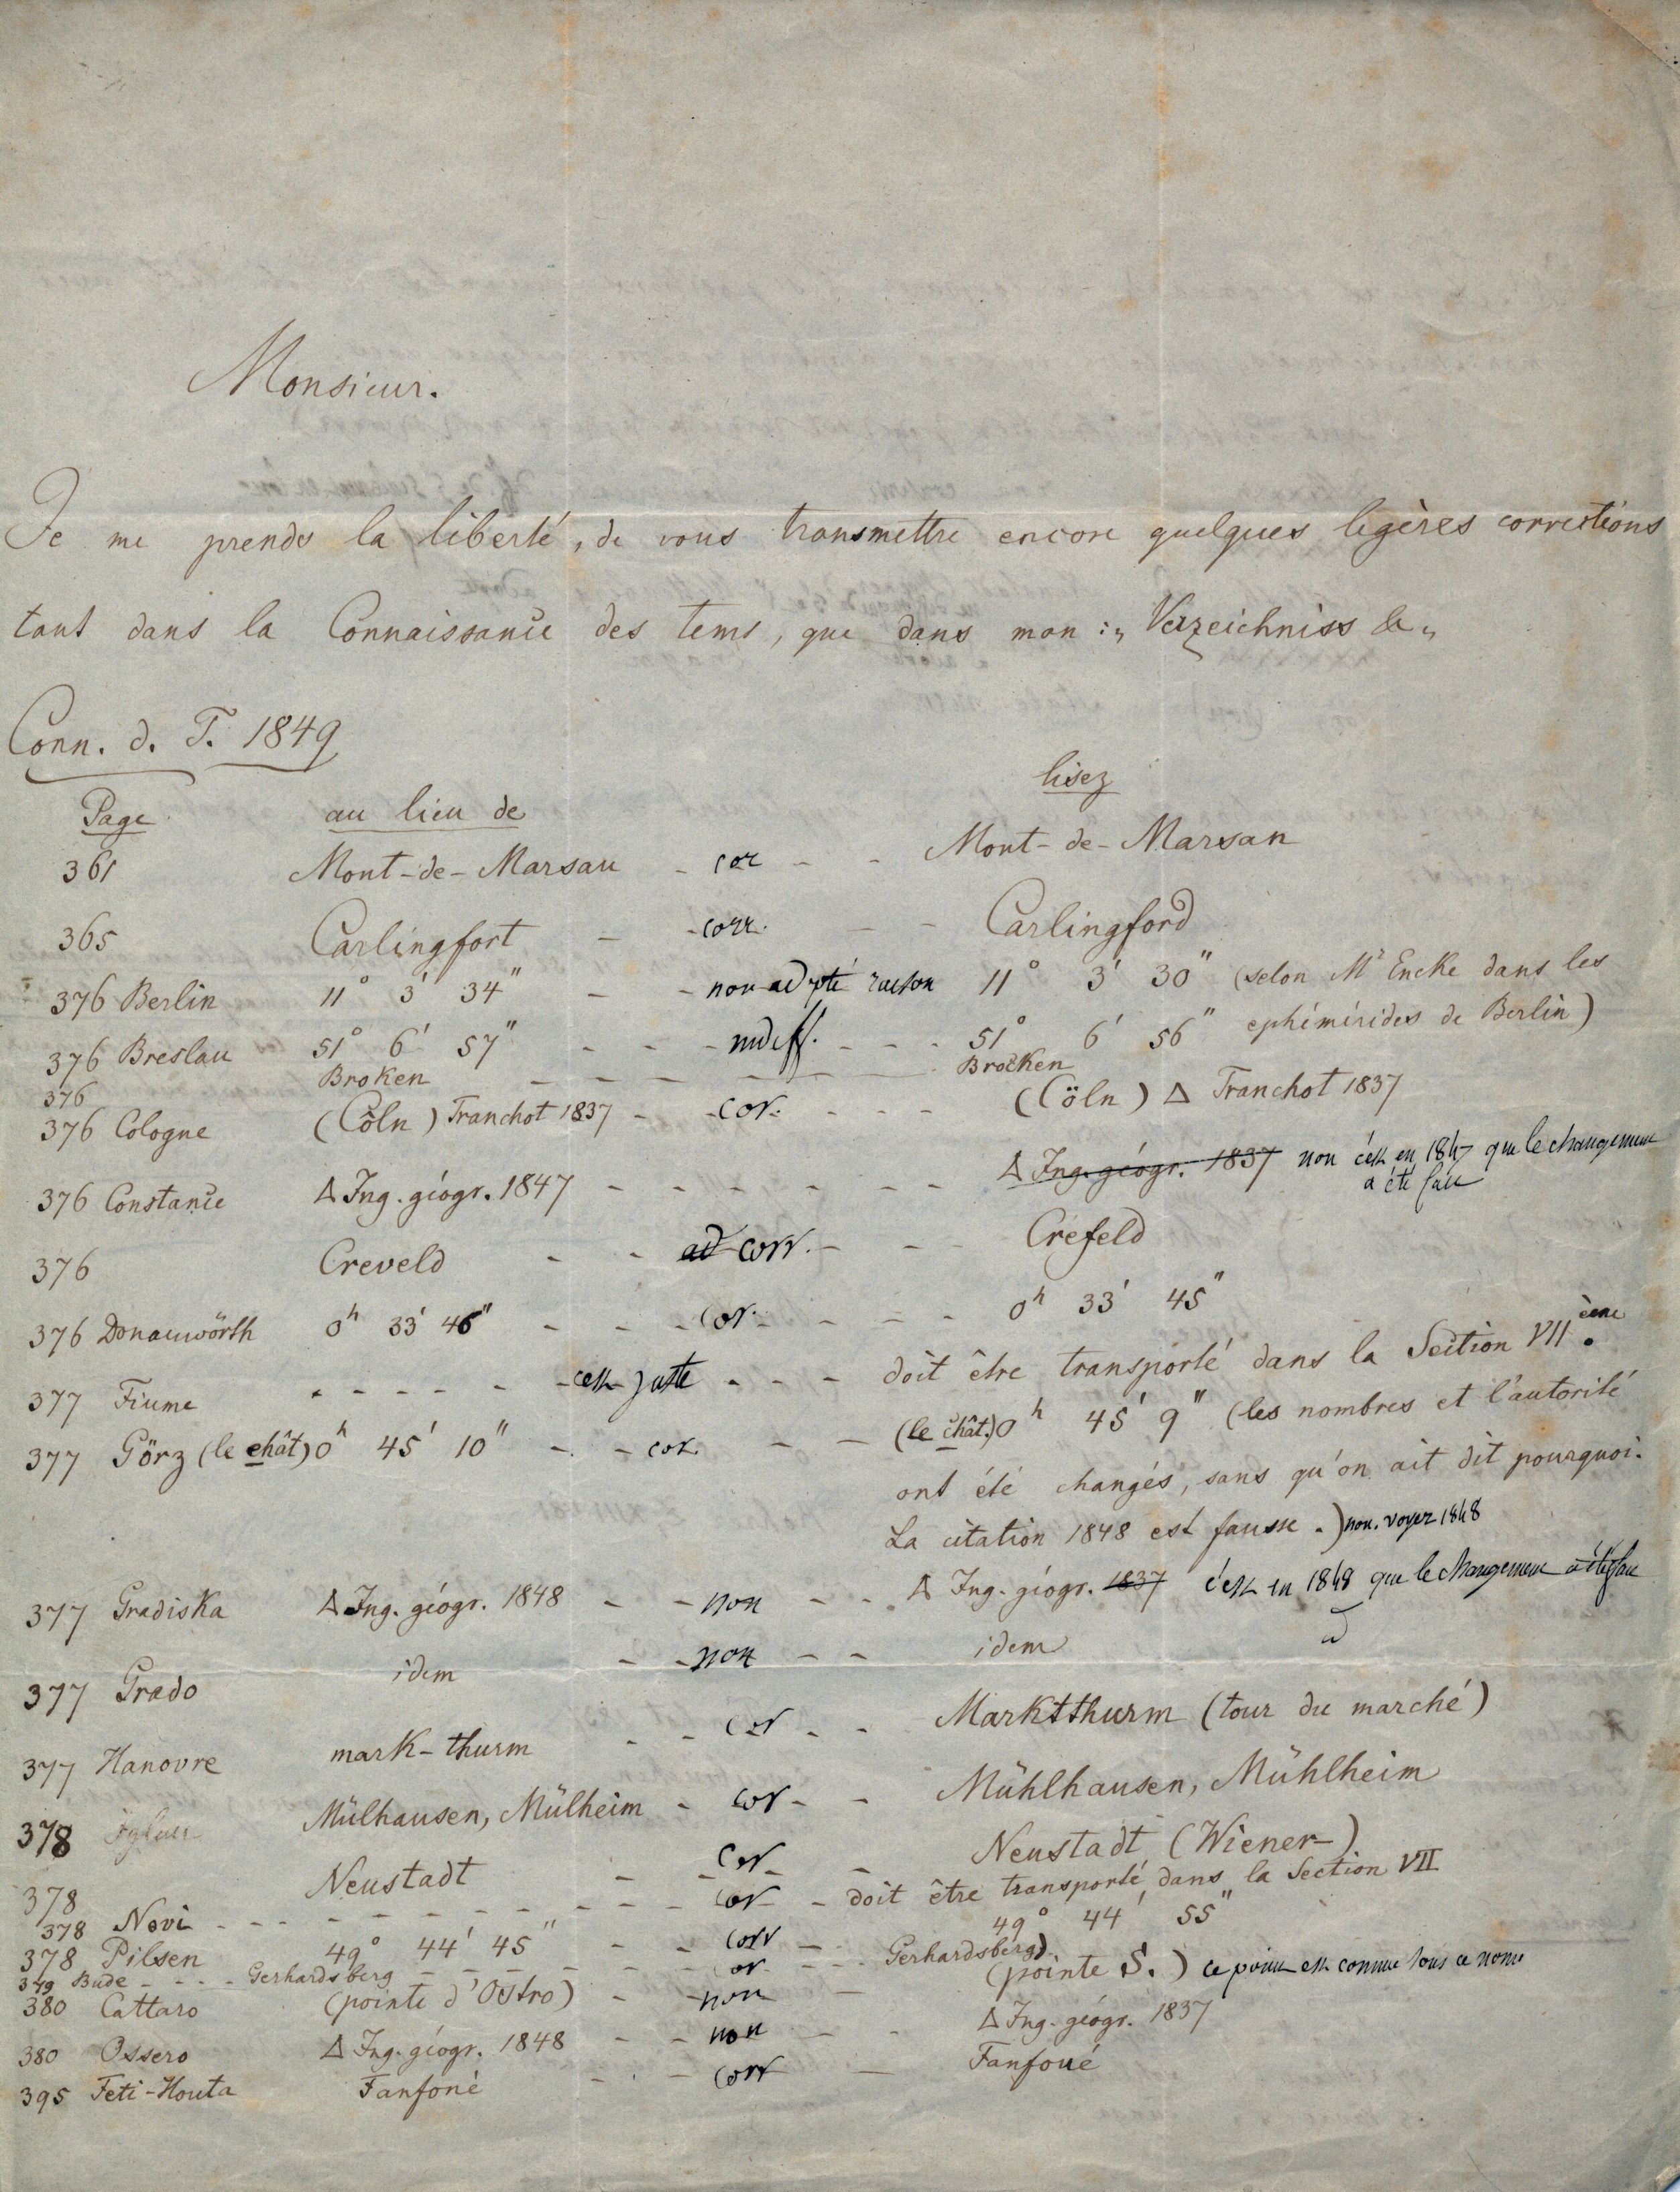 Monsieur.
Je me prends la liberté, de vous transmettre encore quelques legères corrections
tant dans la Connaissance des tems, que dans mon :„ Verzeichniss &c „
Conn. d. T. 1849
Page au lieu de lisez
361 Mont-de-Marsau - cor - - Mont-de-Marsan
365 Carlingfort - - corr. - - Carlingford
376 Berlin 11° 3' 34" - - non adopté raison 11° 3' 30" (selon Mr Encke dans les
ephémérides de Berlin)
376 Breslau 51° 6' 57" - - - indiff. - - - 51° 6' 56"
376 Broken - - - - - Brocken
376 Cologne (Cöln) Tranchot 1837 - - cor. - - - (Cöln) Δ Tranchot 1837
376 Constance Δ Ing. géogr. 1847 - - - - - - - Δ Ing. géogr. 1837 non c'est en 1847 que le changement
a été fait
376 Creveld - - ad corr. - - Crefeld
376 Donauwörth 0h 33' 46" - - - cor. - - - - 0h 33' 45"
377 Fiume - - - - - - c'est juste - - - doit être transporté dans la Section VII ème.
377 Görz (le chât) 0h 45' 10" - - cor. - - (le chât.) 0h 45' 9" (les nombres et l'autorité
ont été changés, sans qu'on ait dit pourquoi.
La citation 1848 est fausse.) non. voyez 1848
377 Gradiska Δ Ing. géogr. 1848 - - non - - Δ Ing. géogr. 1837 c'est en 1848 que le changement a été fait
377 Grado idem - - non - - idem
377 Hanovre mark-thurm - - cor - - Marktthurm (tour du marché)
378 Iglau Mülhausen, Mülheim - cor - - Mühlhausen, Mühlheim
378 Neustadt - - cor - - Neustadt (Wiener-)
378 Novi - - - - - - - - - cor - doit être transporté dans la Section VII
378 Pilsen 49° 44' 45" - - corr - 49° 44' 55"
379 Bude - - - - Gerhardsberg - - - - - - cor - - - Gerhardsberg).
380 Cattaro (pointe d'Ostro) - - non - (pointe S.) ce point est connu sous ce nom
380 Ossero Δ Ing. géogr. 1848 - - non - - Δ Ing. géogr. 1837
395 Feti-Houta Fanfoné - - - corr - Fanfoué